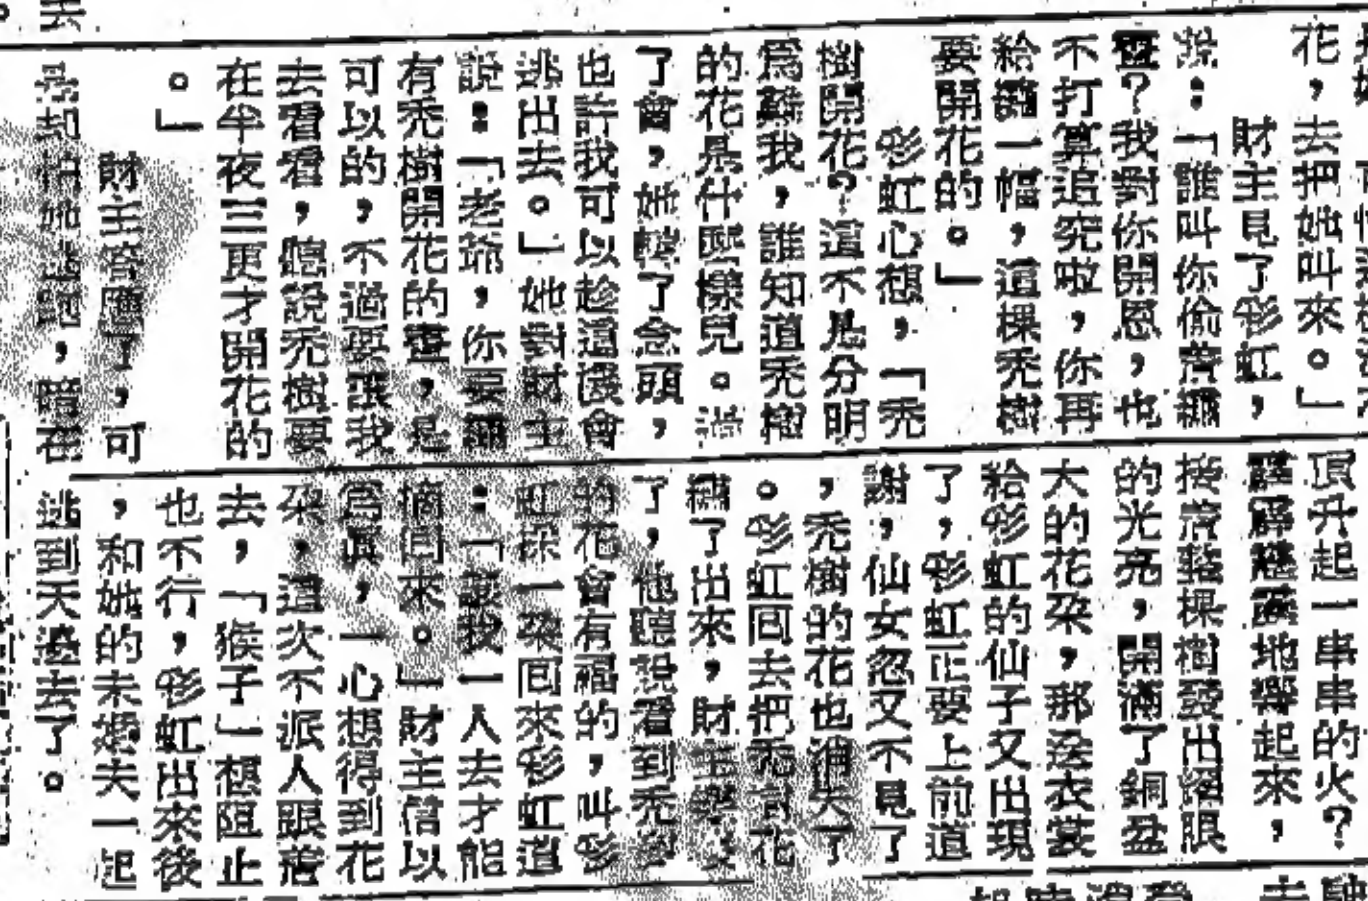 花，去把她叫來。」
財主見了彩虹，
說：「誰叫你偷着繡
畫？我對你開恩，也
不打算追究啦，你再
給繡一幅，這棵禿樹
要開花的。」
彩虹心想，「禿
樹開花？這不是分明
爲難我，誰知道禿樹
的花是什麼樣兒。過
了會，她轉了念頭，
也許我可以趁這機會
逃出去。」她對財主
說：「老爺，你要繡
有禿樹開花的畫，是
可以的，不過要讓我
去看看，聽說禿樹要
在半夜三更才開花的
。」
財主答應了，可
是却怕她逃跑，暗在
頂升起一串串的火？
地響起來，
接着整棵樹發出耀眼
的光亮，開滿了銅盆
大的花朶，那送衣裳
給彩虹的仙子又出現
了，彩虹正要上前道
謝，仙女忽又不見了
，禿樹的花也消失了
。彩虹囘去把禿樹花
繡了出來，財主
了，他聽說看到禿樹
的花會有福的，叫彩
虹採一朶囘來彩虹道
：「讓我一人去才能
摘囘來。」財主信以
爲眞，一心想得到花
朶，這次不派人跟着
去，「猴子」想阻止
也不行，彩虹出來後
，和她的未婚夫一起
逃到天邊去了。